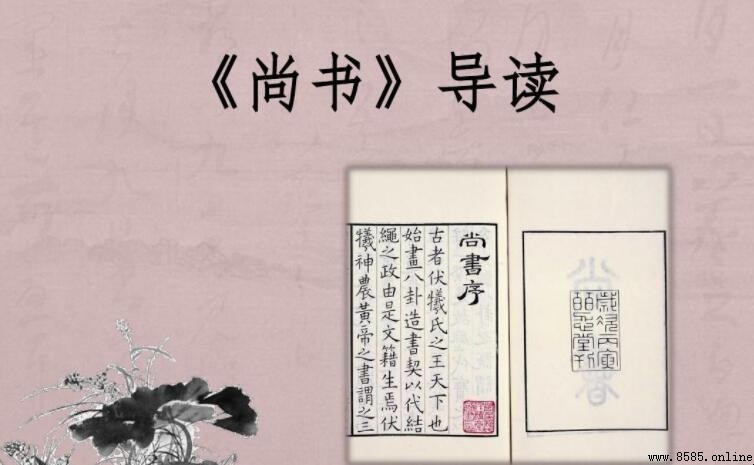 《尚书》导读
尚書序
古者伏犧氏之王天下也
始畫八卦造書契以代結
繩之政由是文籍生焉伏
犧神農黃帝之書謂之三
歲次丙寅
皕忍堂刊
www.8585.online